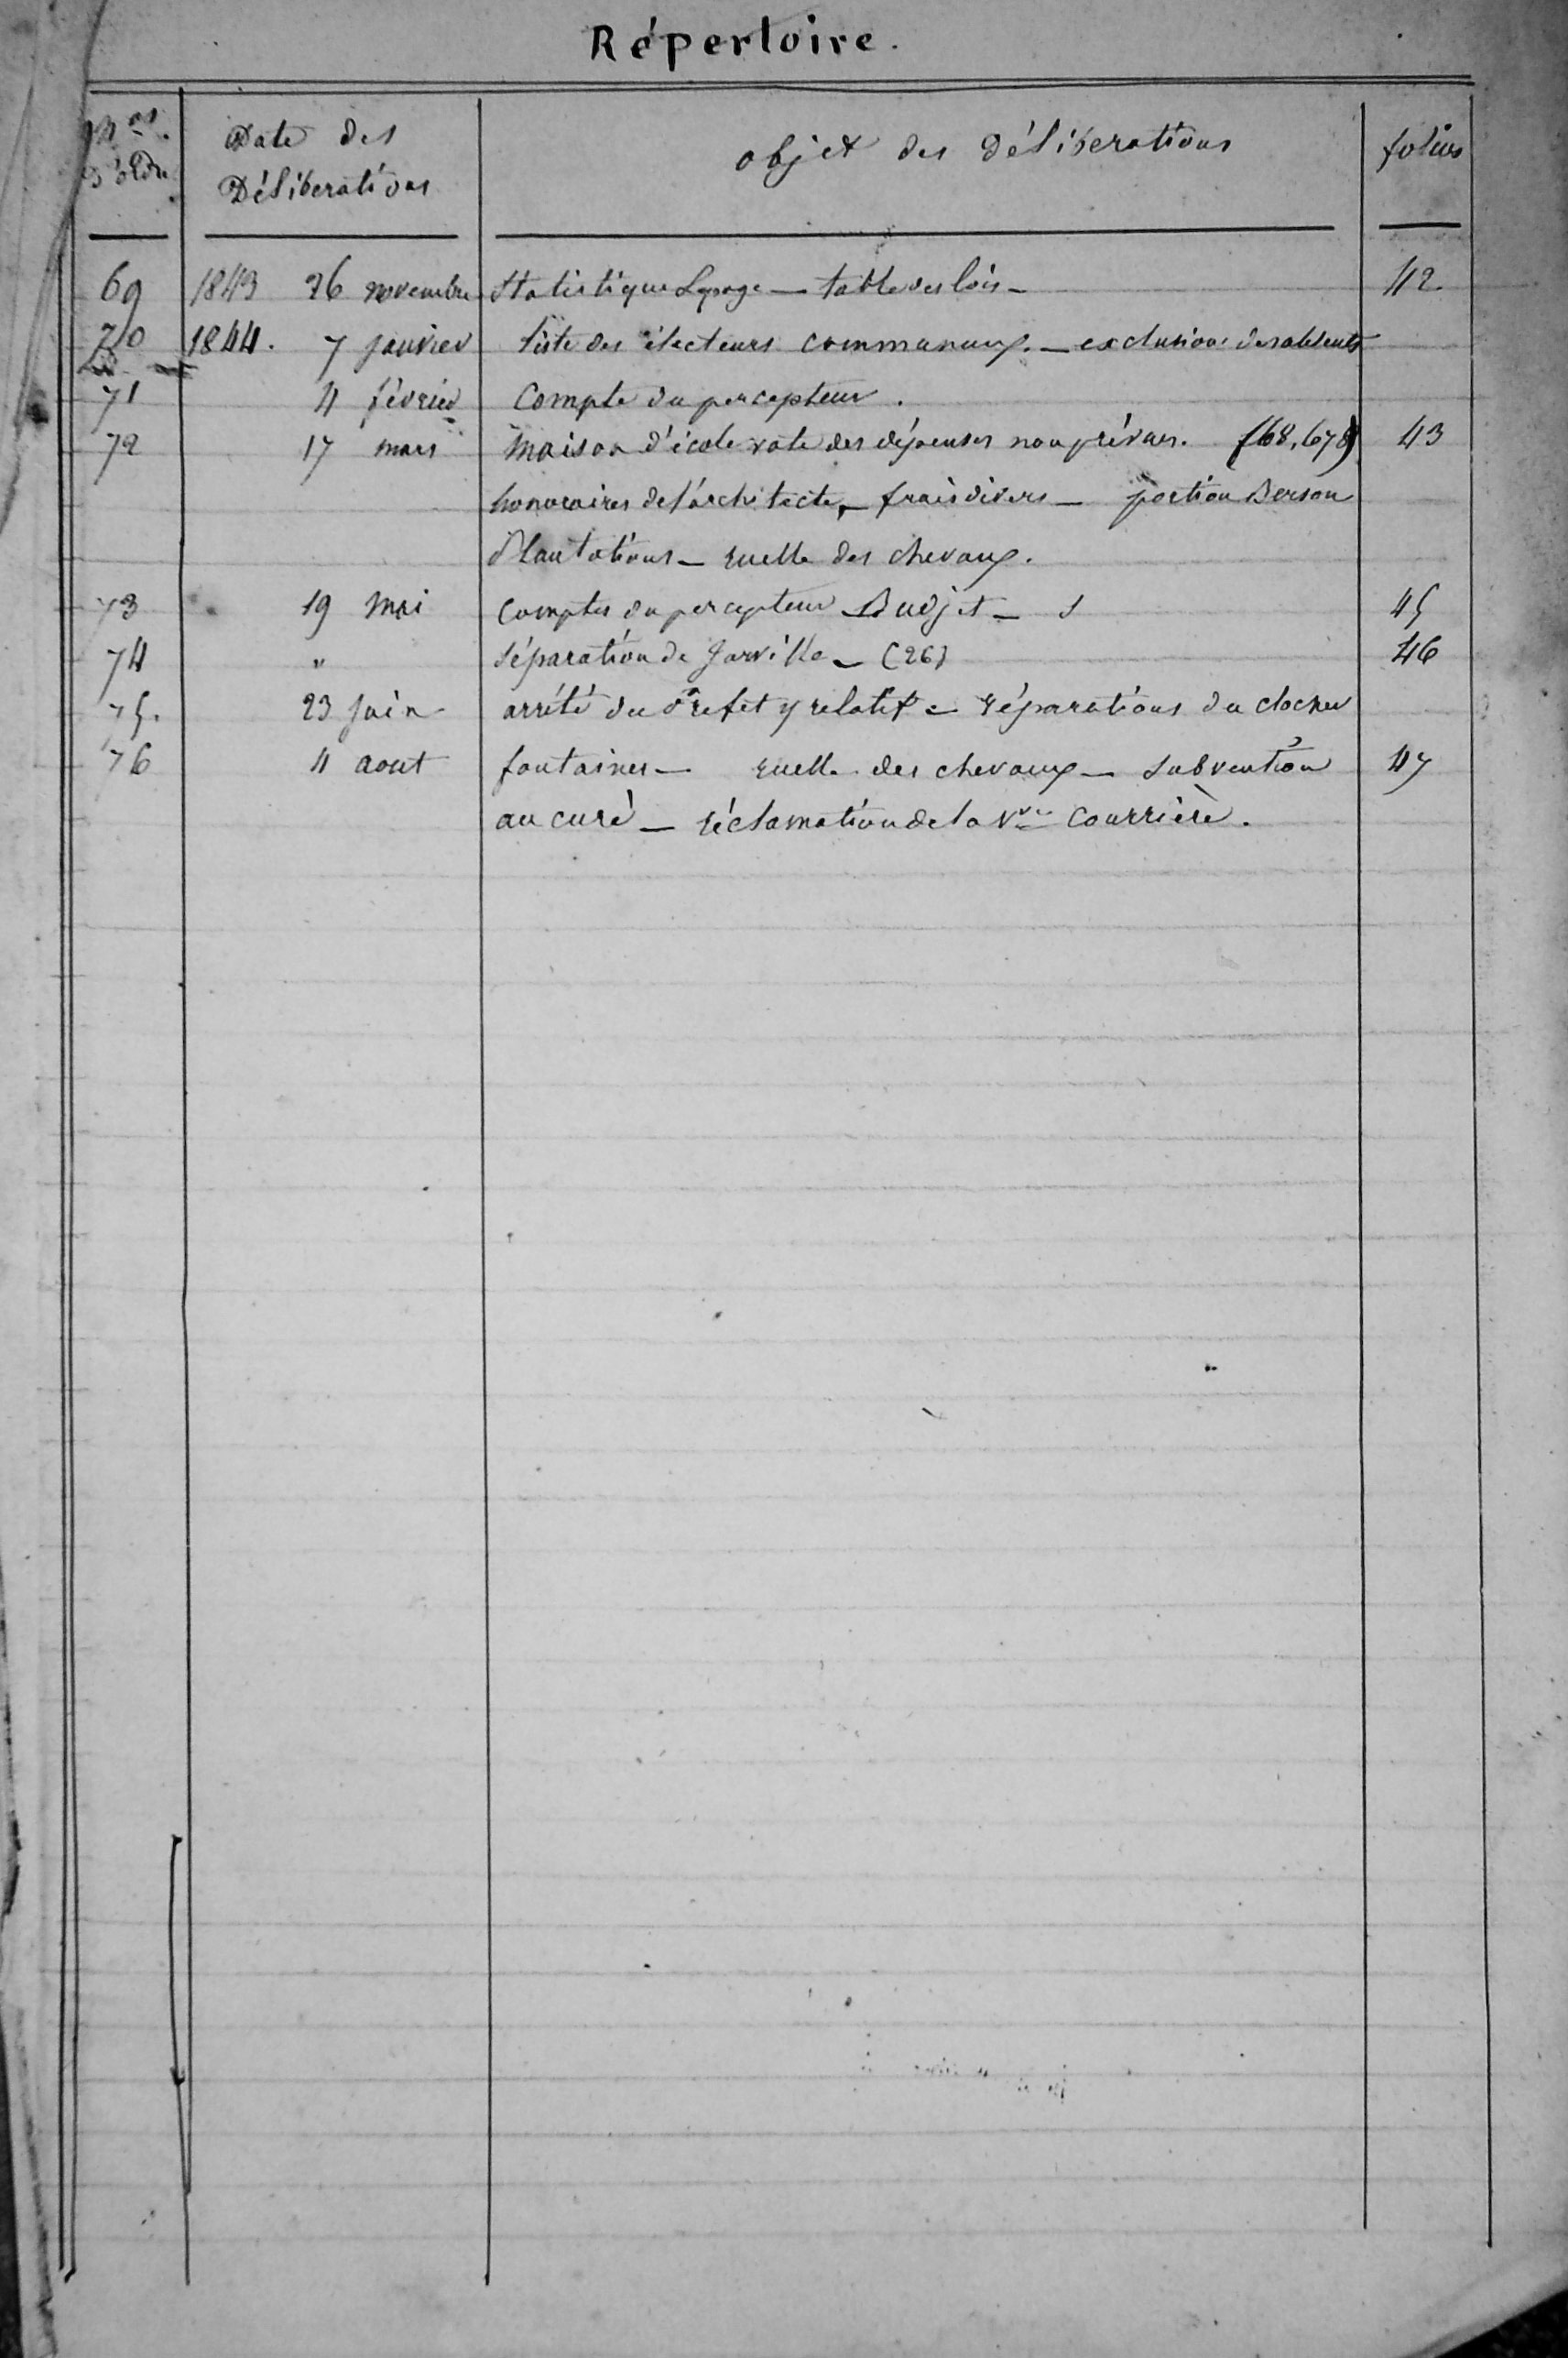 Répertoire.
Nos d'ordre Date des Délibérations objet des Délibérations folios
69 1843 26 novembre Statistique Lepage — table des lois — 42.
70 1844. 7 janvier liste des électeurs communaux. — exclusion des absents
71 4 février Compte du percepteur.
72 17 mars Maison d'école vote des dépenses non prévues. (68,678) 43
honoraires de l'architecte, — frais divers — portion Berson
Plantations — ruelle des chevaux.
73 19 Mai Comptes du percepteur Budjet — 45
74 " Séparation de Jarville — (26) 46
75. 23 Juin arrêté du Préfet y relatif — réparations du clocher
76 4 aout fontaines — ruelle des chevaux — subvention 47
au curé — réclamation de la Vve Courrière.